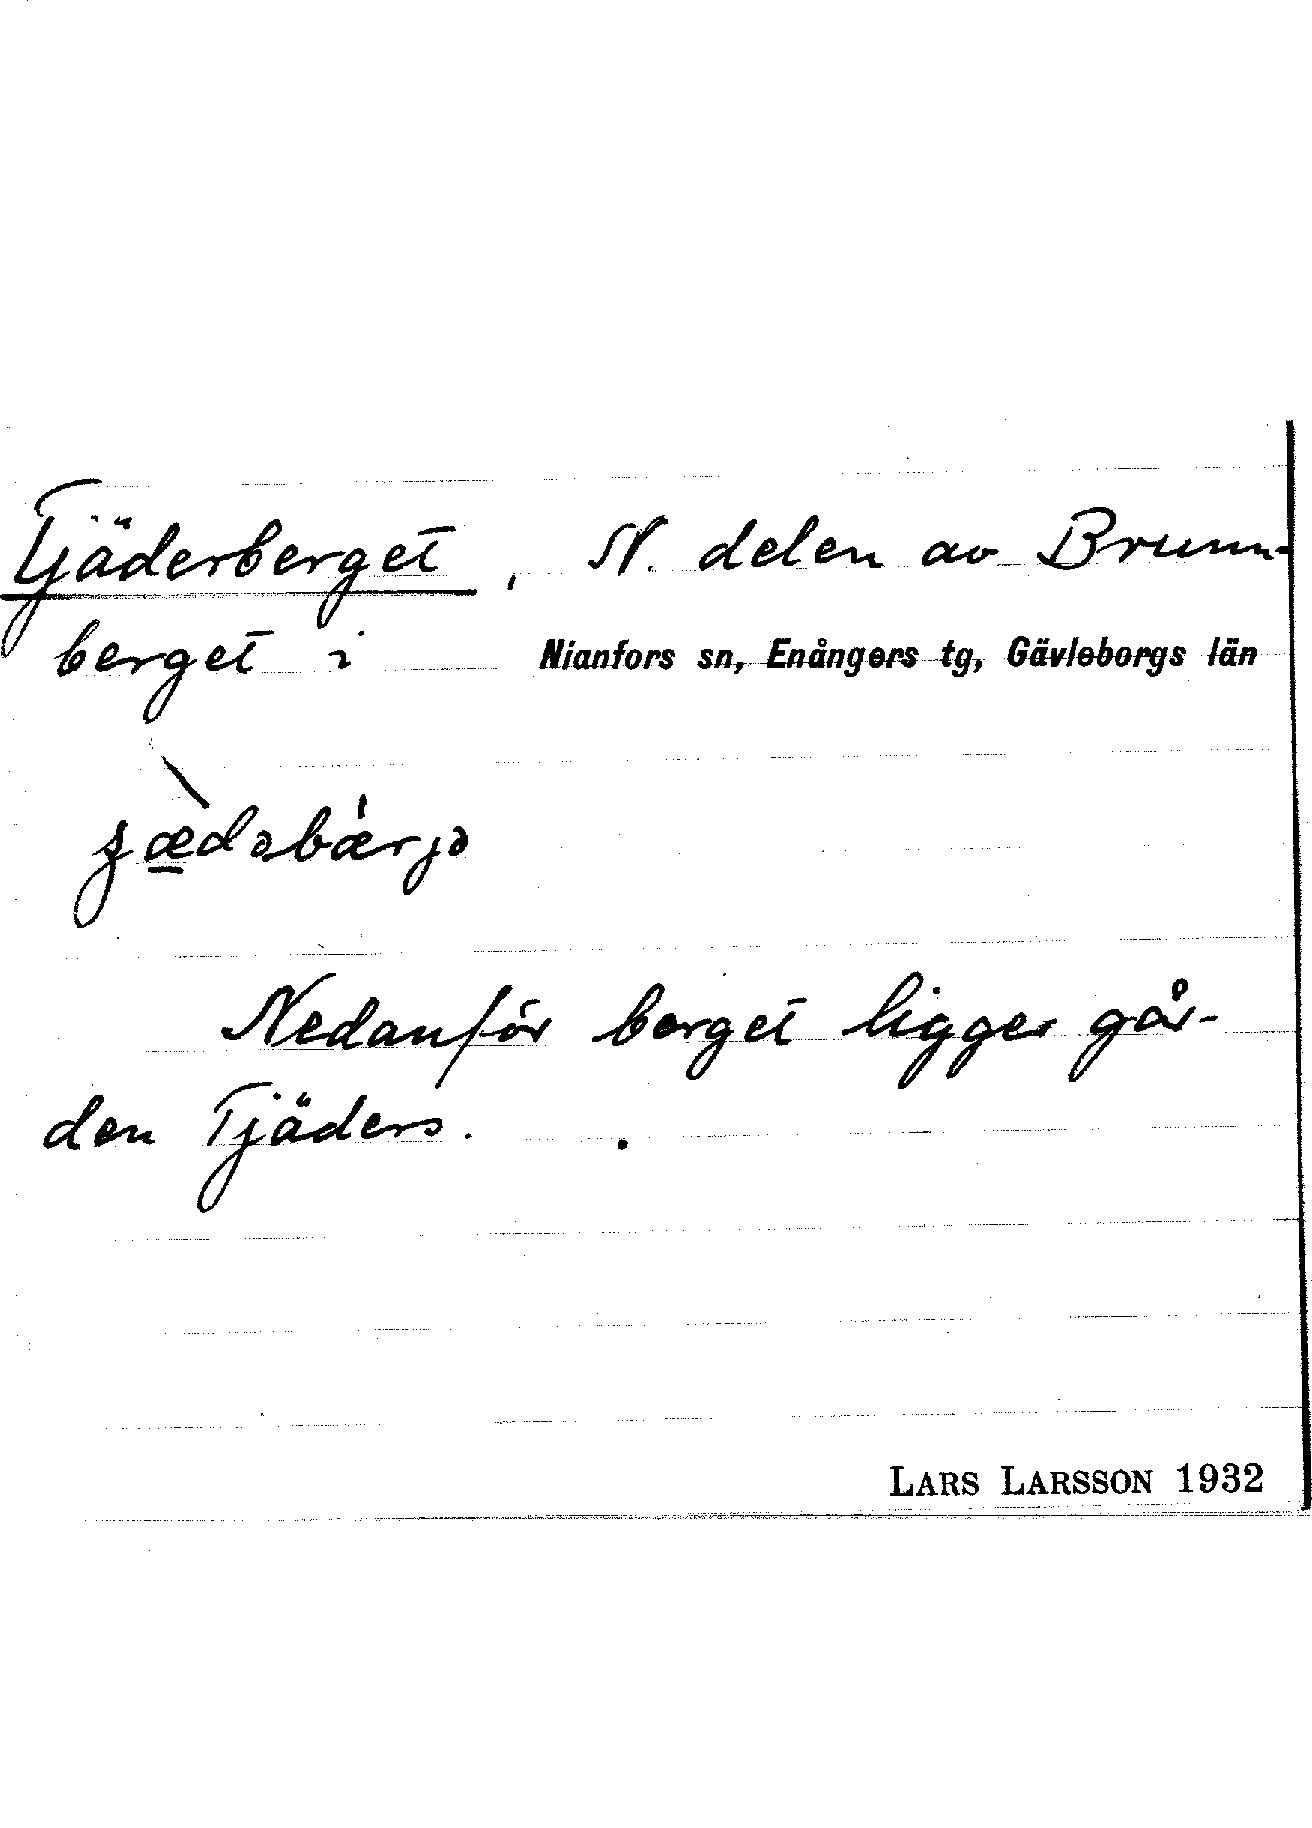 Tjäderberget, N. delen av Brunn-
berget i Nianfors sn, Enångers tg, Gävleborgs län
Nedanför berget ligger går-
den Tjäders.
LARS LARSSON 1932